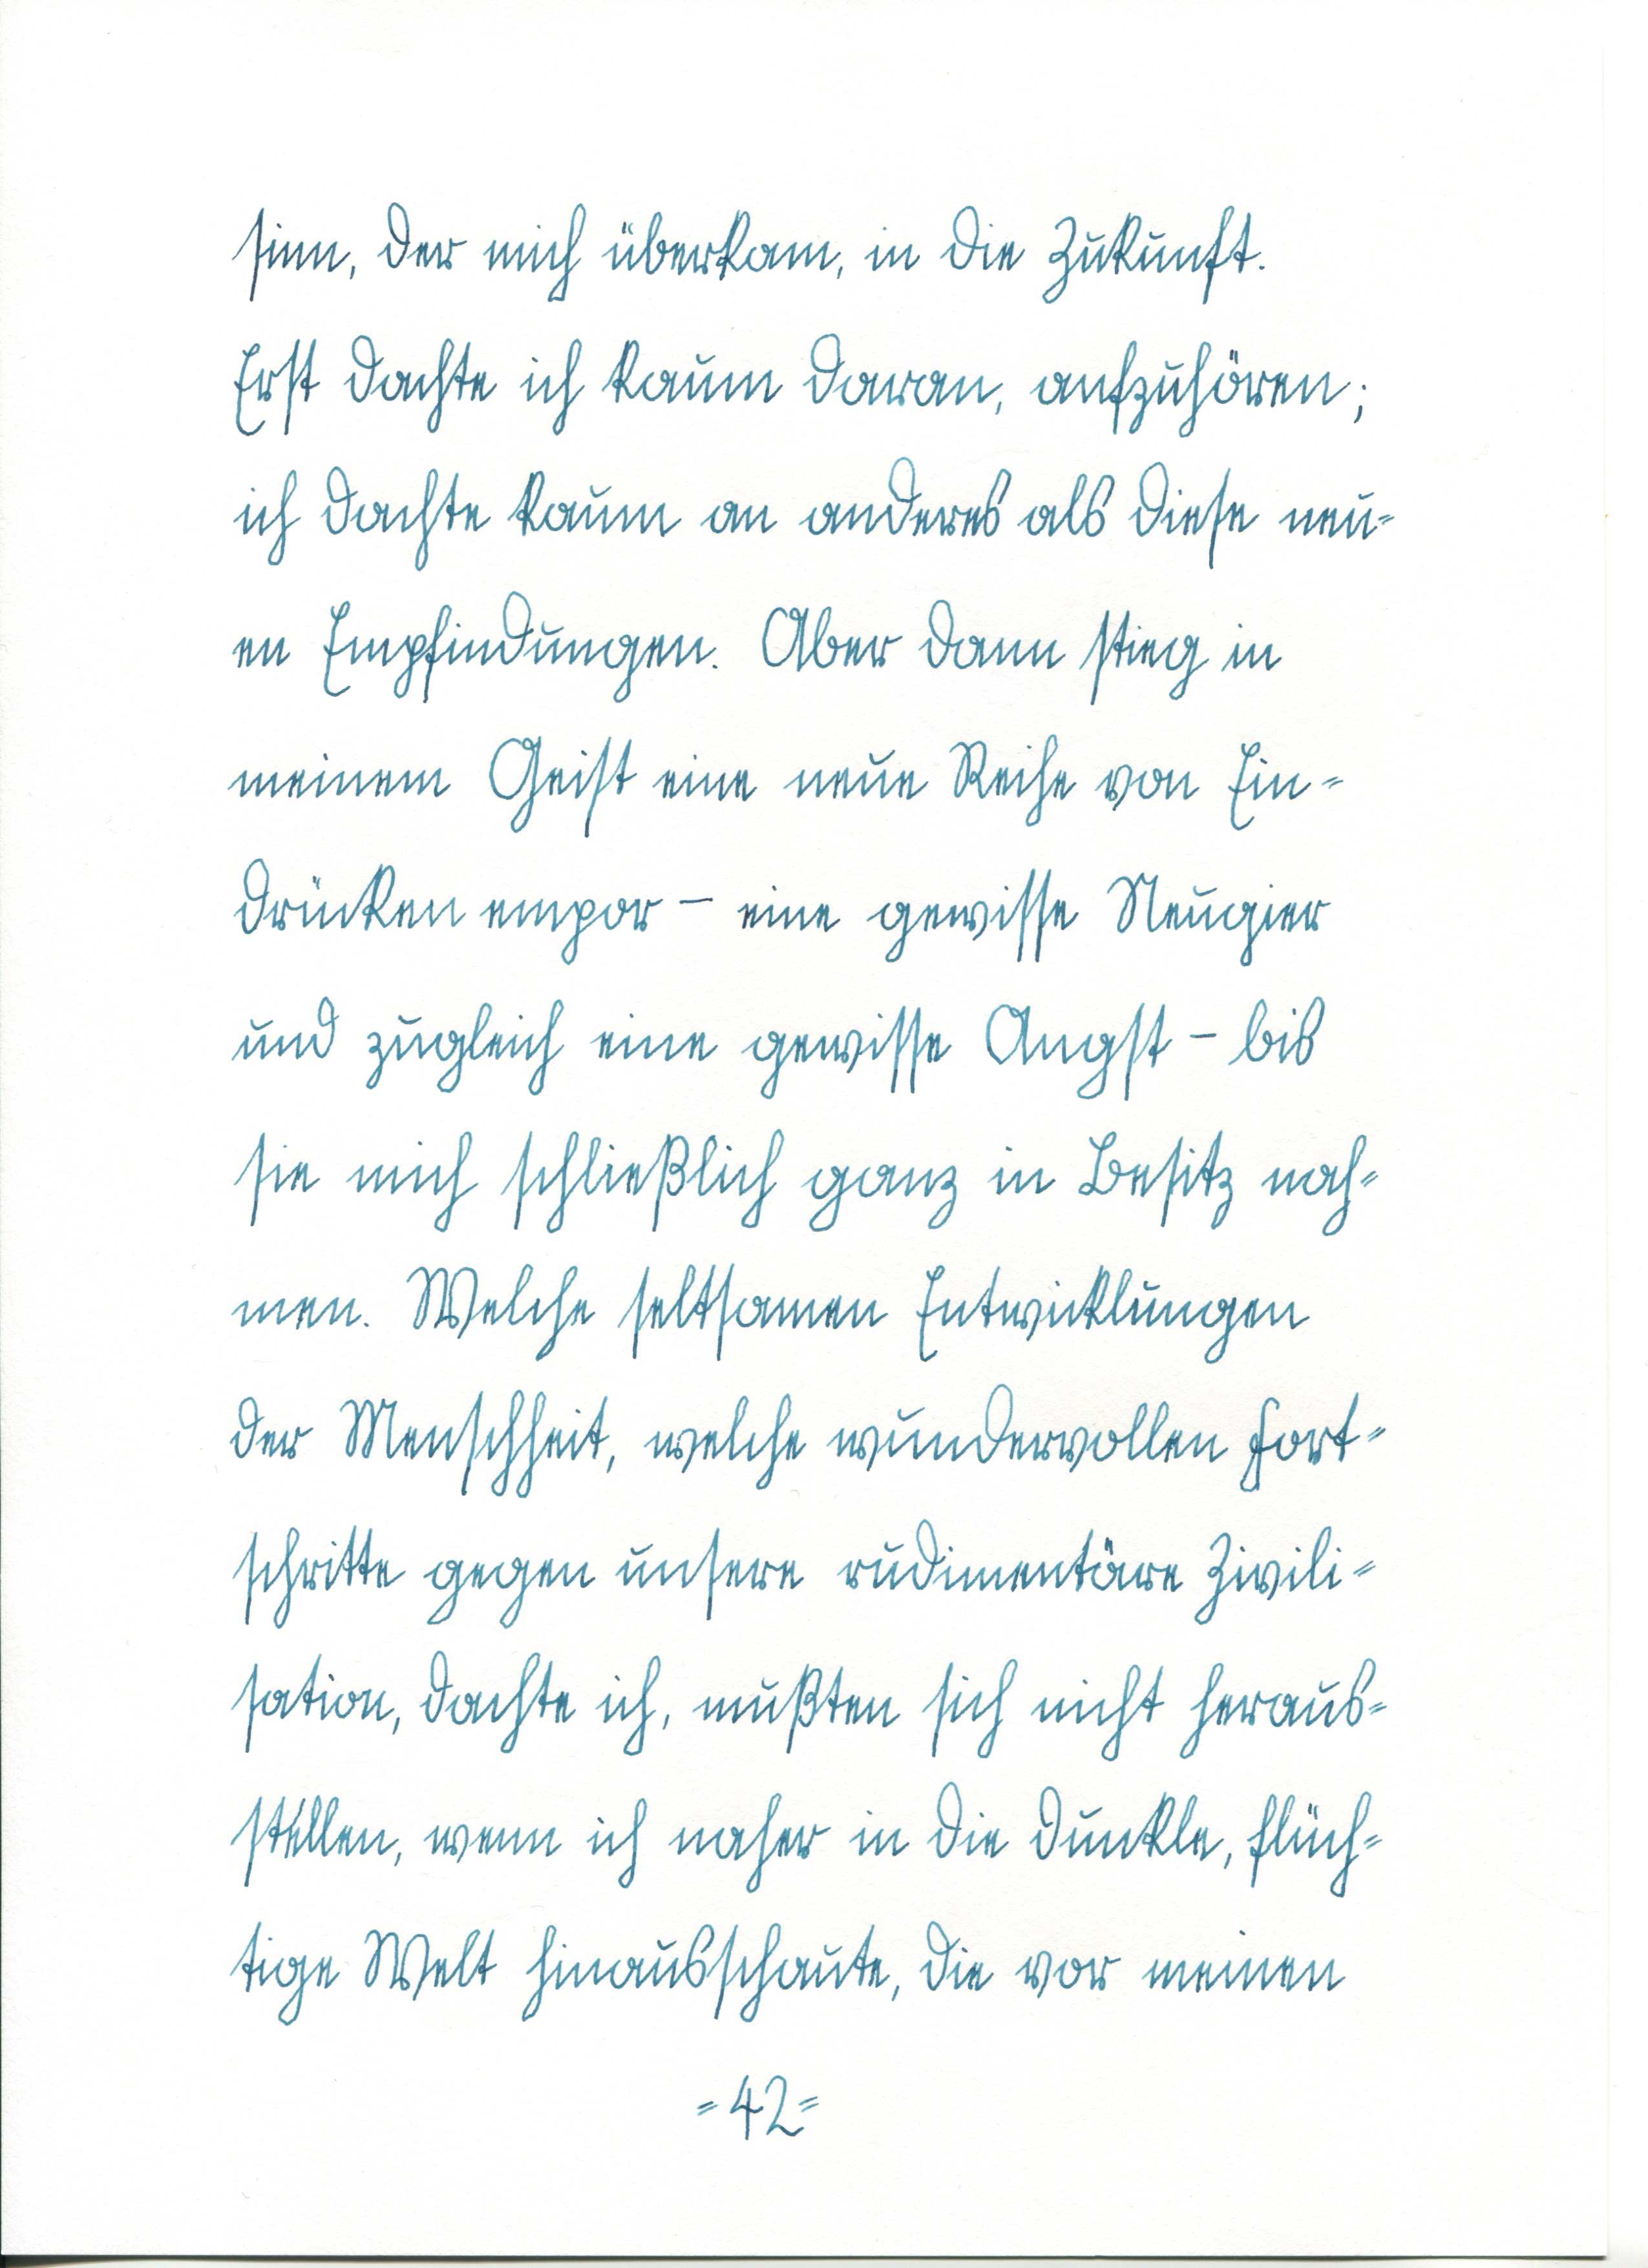 sinn, der mich überkam, in die Zukunft.
Erst dachte ich kaum daran, aufzuhören;
ich dachte kaum an anderes als diese neu=
en Empfindungen. Aber dann stieg in
meinem Geist eine neue Reihe von Ein=
drücken empor – eine gewisse Neugier
und zugleich eine gewisse Angst – bis
sie mich schließlich ganz in Besitz nah=
men. Welche seltsamen Entwicklungen
der Menschheit, welche wundervollen Fort=
schritte gegen unsere rudimentäre Zivili=
sation, dachte ich, mußten sich nicht heraus=
stellen, wenn ich naher in die dunkle, flüch=
tige Welt hinausschaute, die vor meinen
=42=